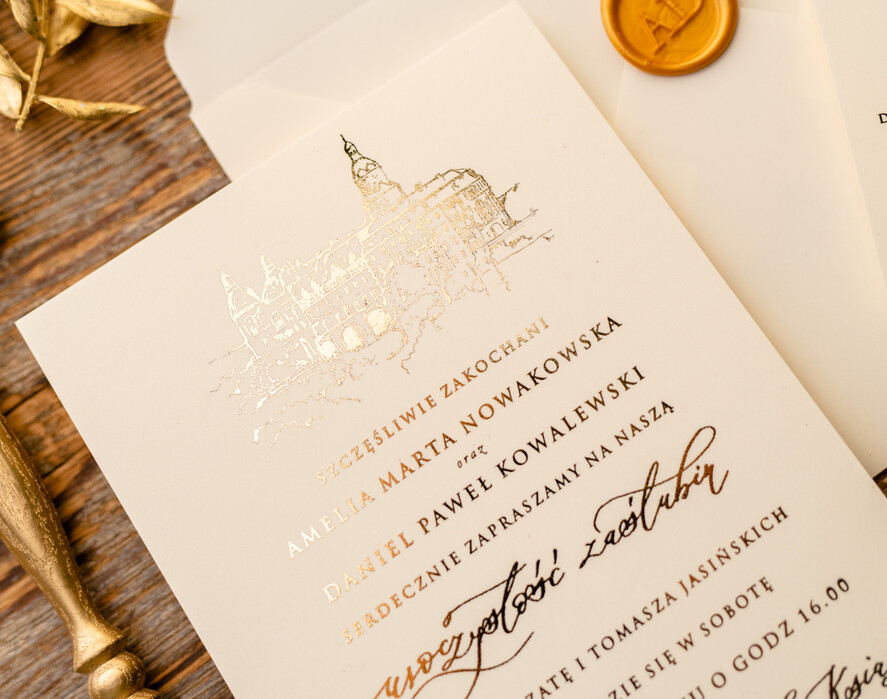 SZCZĘŚLIWIE ZAKOCHANI
AMELIA MARTA NOWAKOWSKA
oraz
DANIEL PAWEŁ KOWALEWSKI
SERDECZNIE ZAPRASZAMY NA NASZĄ
uroczystość zaślubin
ZATĘ I TOMASZA JASIŃSKICH
DZIE SIĘ W SOBOTĘ
U O GODZ 16.00